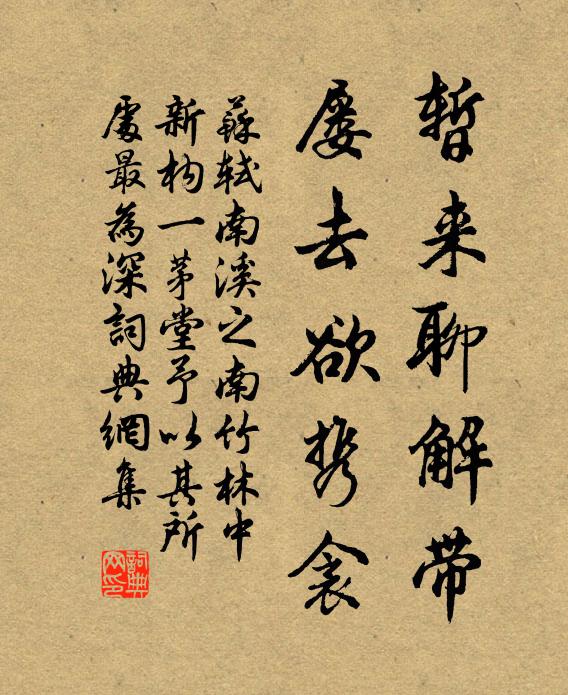 暂来聊解带
屡去欲携衾
蘇轼南溪之南竹林中
新构一茅堂予以其所
處最為深詞典網集
詞典网印